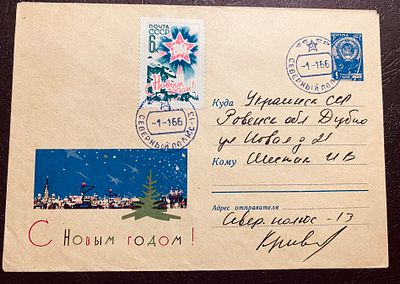 ПОЧТА
СССР
6 К
1963
С Новым
годом!
-1-166
СЕВЕРНЫЙ ПОЛЮС-13
-1-166
СЕВЕРНЫЙ ПОЛЮС-13
Куда Украинск ССР
Ровенск обл Дубно
ул Новая д 21
Кому Шестак И В
Адрес отправителя
Север. полюс - 13
С Новым годом!